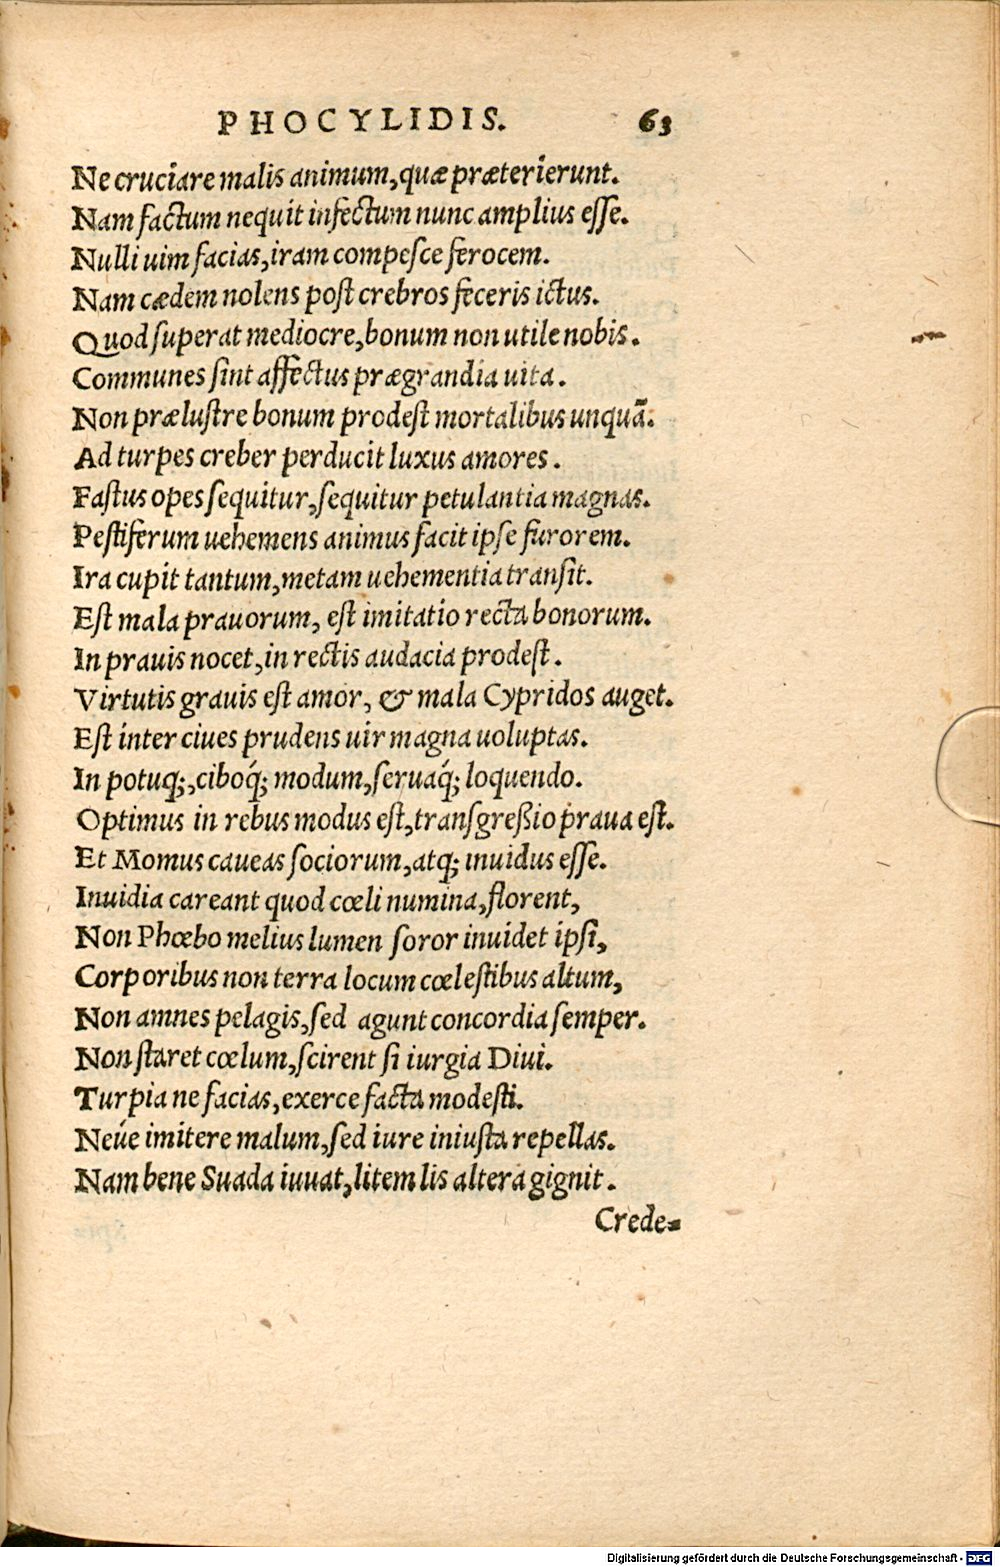 PHOCYLIDIS. 63
Ne crucîare malis animum, quæ præterîerunt.
Nam factum nequit infectum nunc amplius esse.
Nulli uim facias, iram compesce ferocem.
Nam cædem nolens post crebros feceris ictus.
Quod superat mediocre, bonum non utile nobis.
Communes sint affectus prægrandia uita.
Non prælustre bonum prodest mortalibus unquã.
Ad turpes creber perducit luxus amores.
Fastus opes sequitur, sequitur petulantia magnas.
Pestiferum uehemens animus facit ipse furorem.
Ira cupit tantum, metam uehementia transit.
Est mala prauorum, est imitatio recta bonorum.
In prauis nocet, in rectis audacia prodest.
Virtutis grauis est amor, & mala Cypridos auget.
Est inter ciues prudens uir magna uoluptas.
In potuq;, ciboq́; modum, seruaq́; loquendo.
Optimus in rebus modus est, transgreßio praua est.
Et Momus caueas sociorum, atq; inuidus esse.
Inuidia careant quod cœli numina, florent,
Non Phœbo melius lumen soror inuidet ipsi,
Corporibus non terra locum cœlestibus altum,
Non amnes pelagis, sed agunt concordia semper.
Non staret cœlum, scirent si iurgia Diui.
Turpia ne facias, exerce facta modesti.
Neúe imitere malum, sed iure iniusta repellas.
Nam bene Suada iuuat, litem lis altera gignit.
Crede-
Digitalisierung gefördert durch die Deutsche Forschungsgemeinschaft - DFG